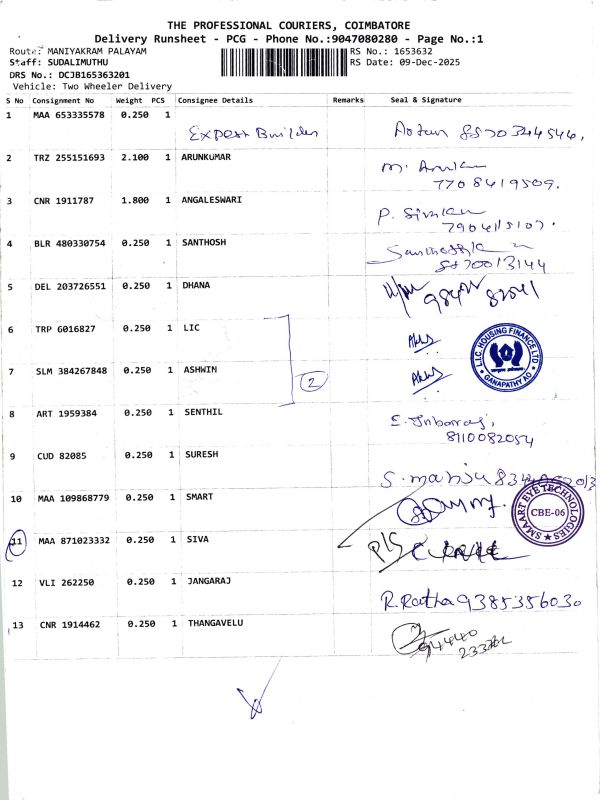 THE PROFESSIONAL COURIERS, COIMBATORE
Delivery Runsheet - PCG - Phone No.:9047080280 - Page No.:1
Route: MANIYAKRAM PALAYAM RS No.: 1653632
Staff: SUDALIMUTHU RS Date: 09-Dec-2025
DRS No.: DCJB165363201
Vehicle: Two Wheeler Delivery
S No Consignment No Weight PCS Consignee Details Remarks Seal & Signature
1 MAA 653335578 0.250 1 Expert Builder 8870344546,
2 TRZ 255151693 2.100 1 ARUNKUMAR M. 7708419509.
3 CNR 1911787 1.800 1 ANGALESWARI P.
4 BLR 480330754 0.250 1 SANTHOSH 8870013144
5 DEL 203726551 0.250 1 DHANA
6 TRP 6016827 0.250 1 LIC
L.I.C. HOUSING FINANCE LTD
GANAPATHY AO
7 SLM 384267848 0.250 1 ASHWIN 2
8 ART 1959384 0.250 1 SENTHIL E. 8110082054
9 CUD 82085 0.250 1 SURESH S. manju
10 MAA 109868779 0.250 1 SMART
SMAART EYE TECHNOLOGIES
CBE-06
11 MAA 871023332 0.250 1 SIVA
12 VLI 262250 0.250 1 JANGARAJ R. Ratha 9385356030
13 CNR 1914462 0.250 1 THANGAVELU